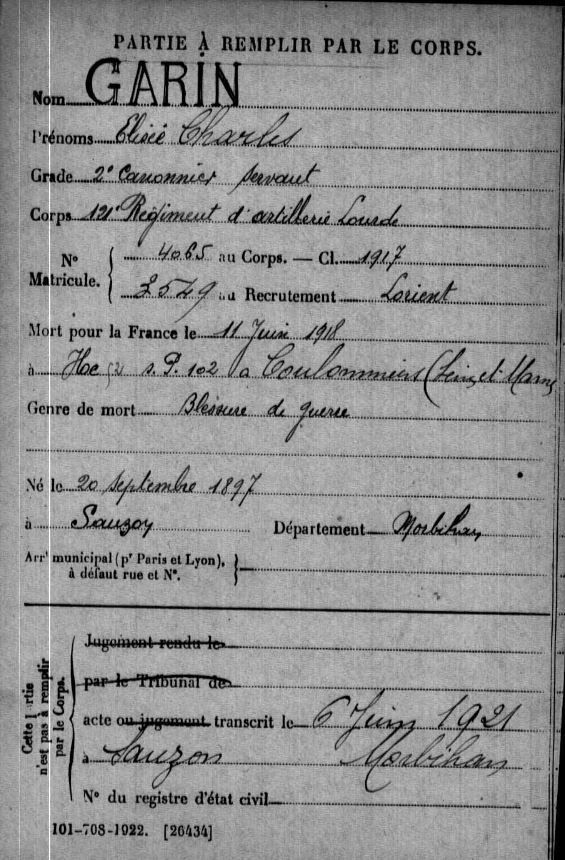 PARTIE À REMPLIR PAR LE CORPS.
Nom GARIN
Prénoms Elisée Charles
Grade 2e Canonnier Servant
Corps 121e Régiment d'artillerie Lourde
N° Matricule. { 4065 au Corps. — Cl. 1917
2549 au Recrutement Lorient
Mort pour la France le 11 Juin 1918
à Hoe s. P. 102 à Coulommiers (Seine et Marne
Genre de mort Blessure de guerre
Né le 20 Septembre 1897
à Sauzon Département Morbihan
Arrt municipal (pr Paris et Lyon), à défaut rue et N°. }
Cette partie n'est pas à remplir par le Corps. {
Jugement rendu le
par le Tribunal de
acte ou jugement transcrit le 6 Juin 1921
à Sauzon Morbihan
N° du registre d'état civil
101-708-1922. [26434]